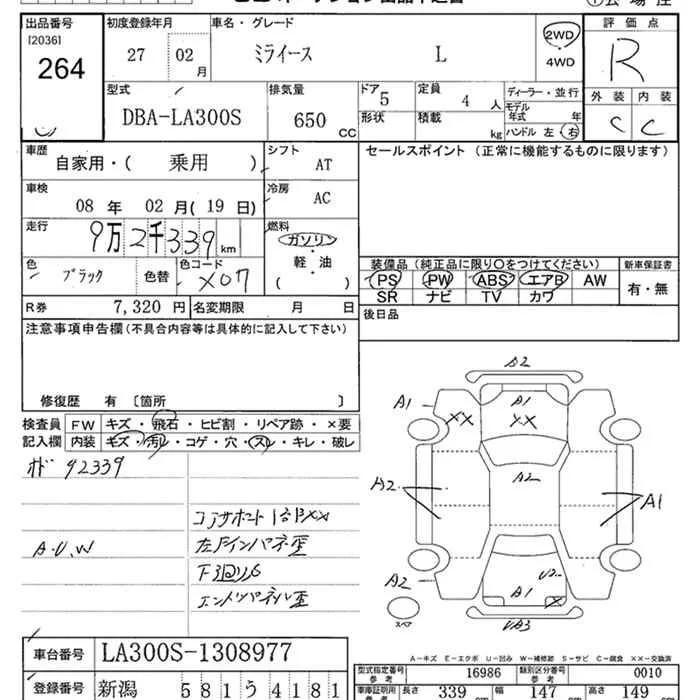 出品番号 初度登録年月 車名・グレード 評価点
[2036]
264
27 02 月
ミライース L
2WD
4WD
R
型式 排気量 ドア 定員 ディーラー・並行
DBA-LA300S 650 CC 5 4 人
モデル年式 年
形状 積載 kg
ハンドル 左 右
外装 内装
C C
車歴 シフト セールスポイント (正常に機能するものに限ります)
自家用・( 乗用 ) AT
車検 冷房
08 年 02 月( 19 日) AC
走行 燃料
9万2千339 km
ガソリン
軽・油
( )
色 色コード
ブラック 色替 X07
装備品 (純正品に限り○をつけてください) 新車保証書
PS PW ABS エアB AW
SR ナビ TV カワ
有・無
R券 7,320 円 名変期限 月 日
後日品
注意事項申告欄 (不具合内容等は具体的に記入して下さい)
修復歴 有 〔箇所 〕
検査員 FW キズ・飛石・ヒビ割・リペア跡・×要
記入欄 内装 キズ・汚レ・コゲ・穴・スレ・キレ・破レ
92339
コアサポート
A.U.W
左Fインパネ歪
エンドパネル歪
A2
A1
A1
XX
XX
A2
A2
A1
A2
U2
A1
X
スペア
A-キズ E-エクボ U-凹み W-補修跡 S-サビ C-腐食 XX-交換済
車台番号 LA300S-1308977
型式指定番号 参考 16986 類別区分番号 参考 0010
登録番号 新潟 581う4181
車庫証明用 参考 長さ 339 cm 幅 147 cm 高さ 149 cm